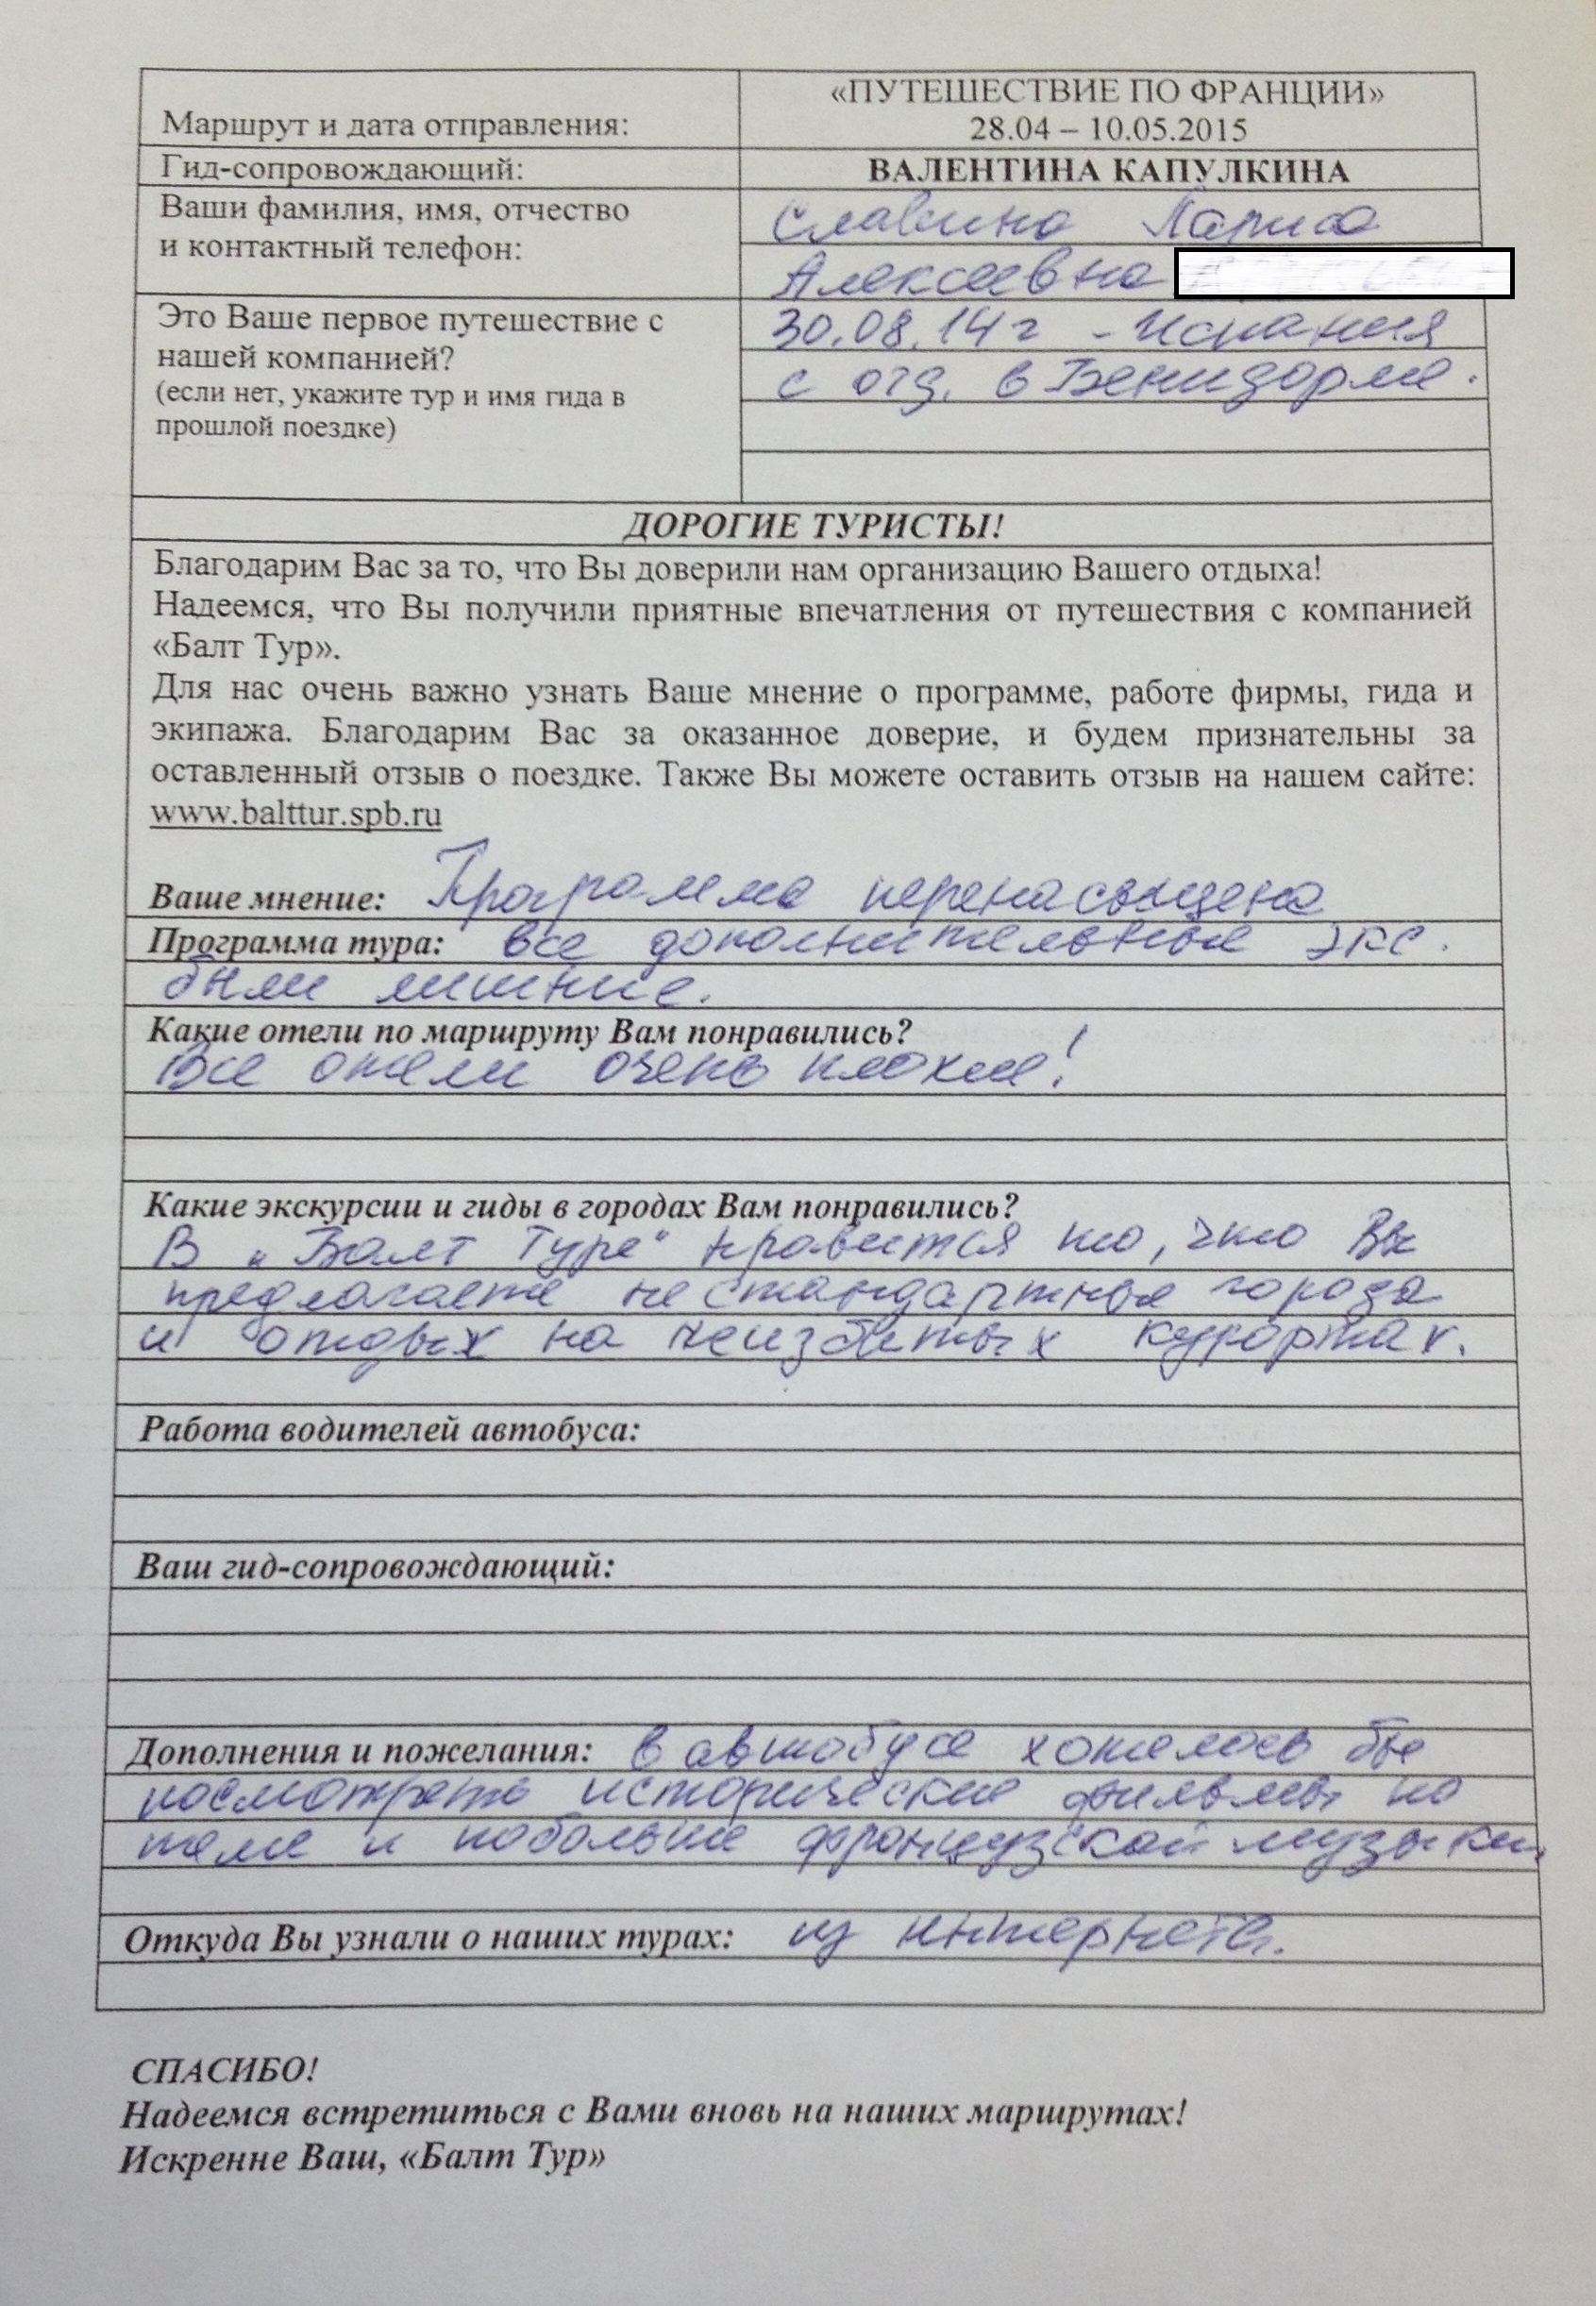 Маршрут и дата отправления:
«ПУТЕШЕСТВИЕ ПО ФРАНЦИИ»
28.04 – 10.05.2015
Гид-сопровождающий:
ВАЛЕНТИНА КАПУЛКИНА
Ваши фамилия, имя, отчество
и контактный телефон:
Славина Лариса
Алексеевна
Это Ваше первое путешествие с
нашей компанией?
(если нет, укажите тур и имя гида в
прошлой поездке)
30.08.14 г - Испания
с отд. в Бенидорме.
ДОРОГИЕ ТУРИСТЫ!
Благодарим Вас за то, что Вы доверили нам организацию Вашего отдыха!
Надеемся, что Вы получили приятные впечатления от путешествия с компанией
«Балт Тур».
Для нас очень важно узнать Ваше мнение о программе, работе фирмы, гида и
экипажа. Благодарим Вас за оказанное доверие, и будем признательны за
оставленный отзыв о поездке. Также Вы можете оставить отзыв на нашем сайте:
www.balttur.spb.ru
Ваше мнение: Программа перенасыщена
Программа тура: все дополнительные экс.
были лишние.
Какие отели по маршруту Вам понравились?
Все отели очень плохие!
Какие экскурсии и гиды в городах Вам понравились?
В „Балт Туре" нравится то, что Вы
предлагаете нестандартные города
и отдых на неизбитых курортах.
Работа водителей автобуса:
Ваш гид-сопровождающий:
Дополнения и пожелания: в автобусе хотелось бы
посмотреть исторические фильмы по
теме и побольше французской музыки.
Откуда Вы узнали о наших турах: из интернета.
СПАСИБО!
Надеемся встретиться с Вами вновь на наших маршрутах!
Искренне Ваш, «Балт Тур»